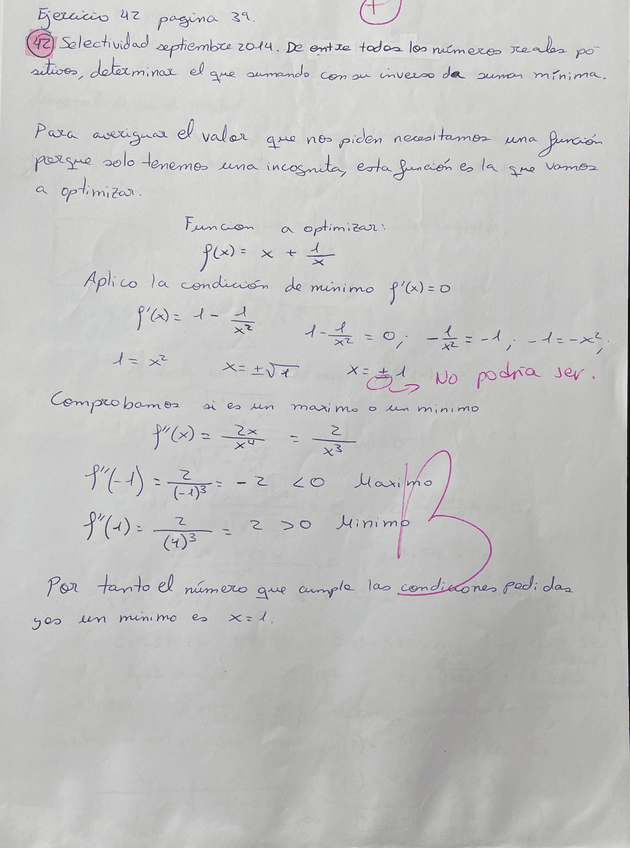 Ejercicio 42 pagina 39.
42 Selectividad septiembre 2014. De entre todos los números reales po-
sitivos, determinar el que sumando con su inverso da suma mínima.
Para averiguar el valor que nos piden necesitamos una función
porque solo tenemos una incognita, esta función es la que vamos
a optimizar.
Funcion a optimizar:
f(x) = x + 1/x
Aplico la condición de minimo f'(x)=0
f'(x) = 1 - 1/x² 1 - 1/x² = 0; -1/x² = -1; -1 = -x²;
1 = x² x = ±√1 x = ± 1
No podría ser.
Comprobamos si es un maximo o un minimo
f''(x) = 2x/x⁴ = 2/x³
f''(-1) = 2/(-1)³ = -2 <0 Maximo
f''(1) = 2/(1)³ = 2 >0 Minimo
B
Por tanto el número que cumple las condiciones pedidas
yes un minimo es x=1.